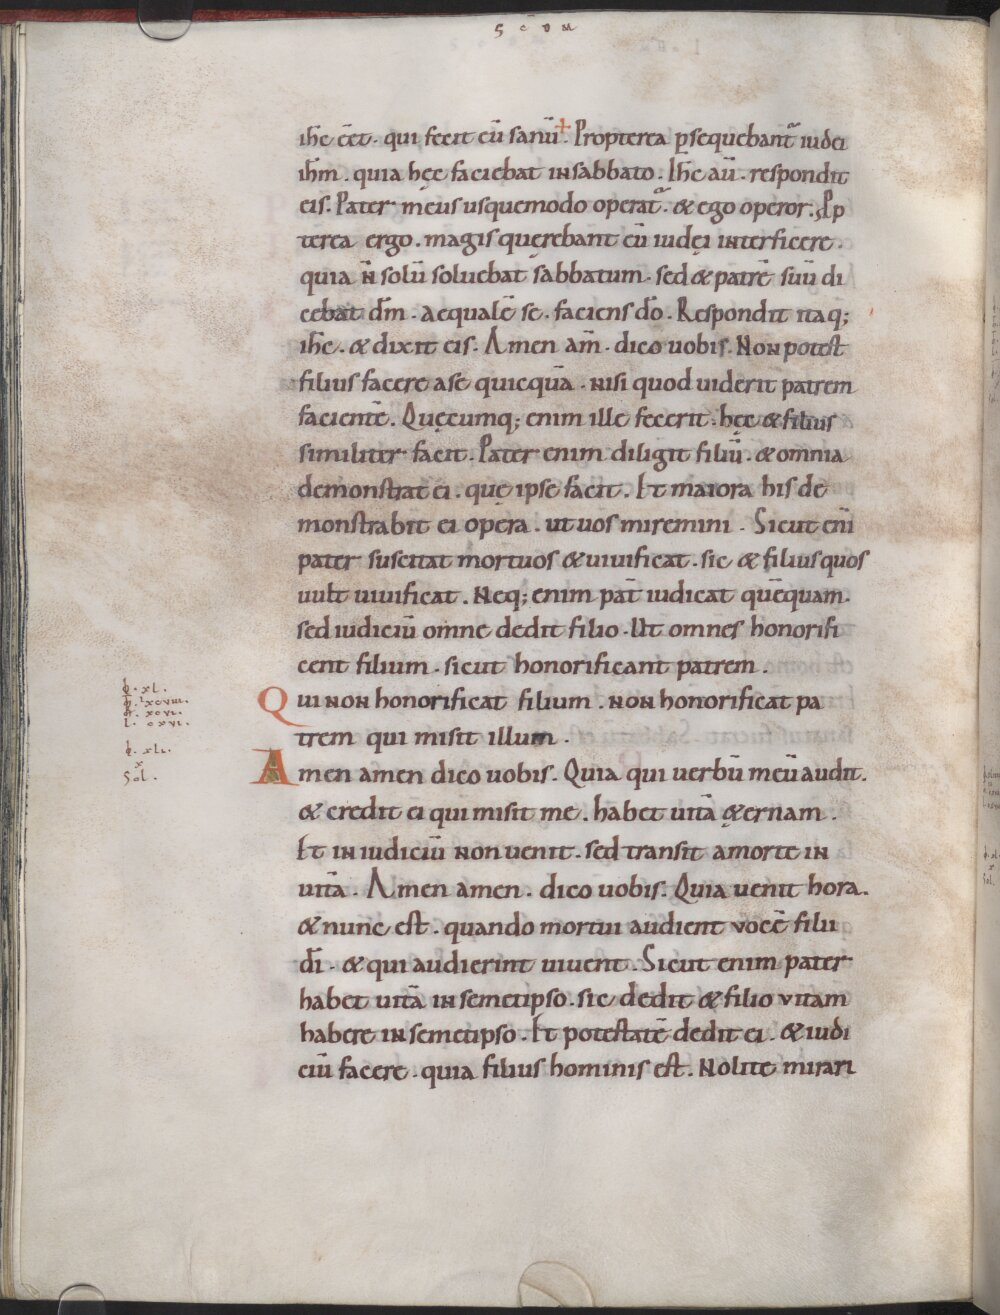 SCDM
ihc̄ ēet. qui fecit cū sanū. Propterea ꝑsequebant᷑ iudei
ihm̄. quia hęc faciebat in sabbato. Ihc̄ aū. respondit
eis. Pater meus usquemodo operat᷑. & ego operor. Pp
terea ergo. magis querebant eū iudęi interficere.
quia n̄ solū soluebat sabbatum. sed & patrē suū di
cebat dm̄. aequalē se. faciens dō. Respondit itaq;
ihc̄. & dixit eis. Amen am̄. dico uobis. Non potest
filius facere a se quicquā. nisi quod uiderit patrem
facientē. Quęcumq; enim ille fecerit. hęc & filius
similiter facit. Pater enim diligit filiū. & omnia
demonstrat ei. quę ipse facit. Et maiora his de
monstrabit ei opera. ut uos miremini. Sicut eni
pater suscitat mortuos & uiuificat. sic & filius quos
uult uiuificat. Neq; enim pat̄ iudicat quēquam.
sed iudiciū omne dedit filio. Ut omnes honorifi
cent filium. sicut honorificant patrem.
Qui non honorificat filium. non honorificat pa
trem qui misit illum.
Amen amen dico uobis. Quia qui uerbū meū audit.
& credit ei qui misit me. habet uitā ęternam.
Et in iudiciū non uenit. sed transit a morte in
uitā. Amen amen. dico uobis. Quia uenit hora.
& nunc est. quando mortui audient vocē filii
dī. & qui audierint uiuent. Sicut enim pater
habet uitā in semetipso. sic dedit & filio vitam
habere in semetipso. Et potestatē dedit ei. & iudi
ciū facere. quia filius hominis est. Nolite mirari
xl.
xcviii.
xcvi.
l. cxvi.
xli.
x
Sol.